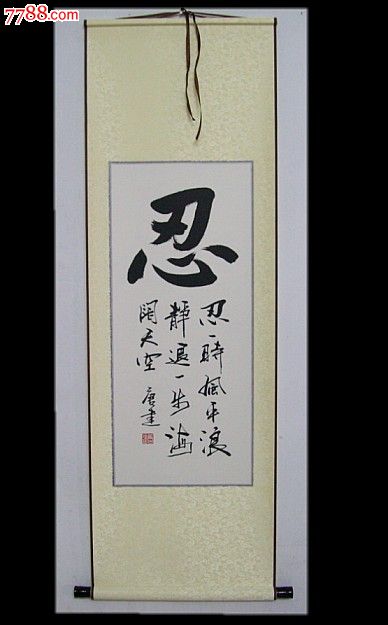 7788.com
中国收藏热线
忍
忍一時風平浪
靜退一步海
闊天空
唐建